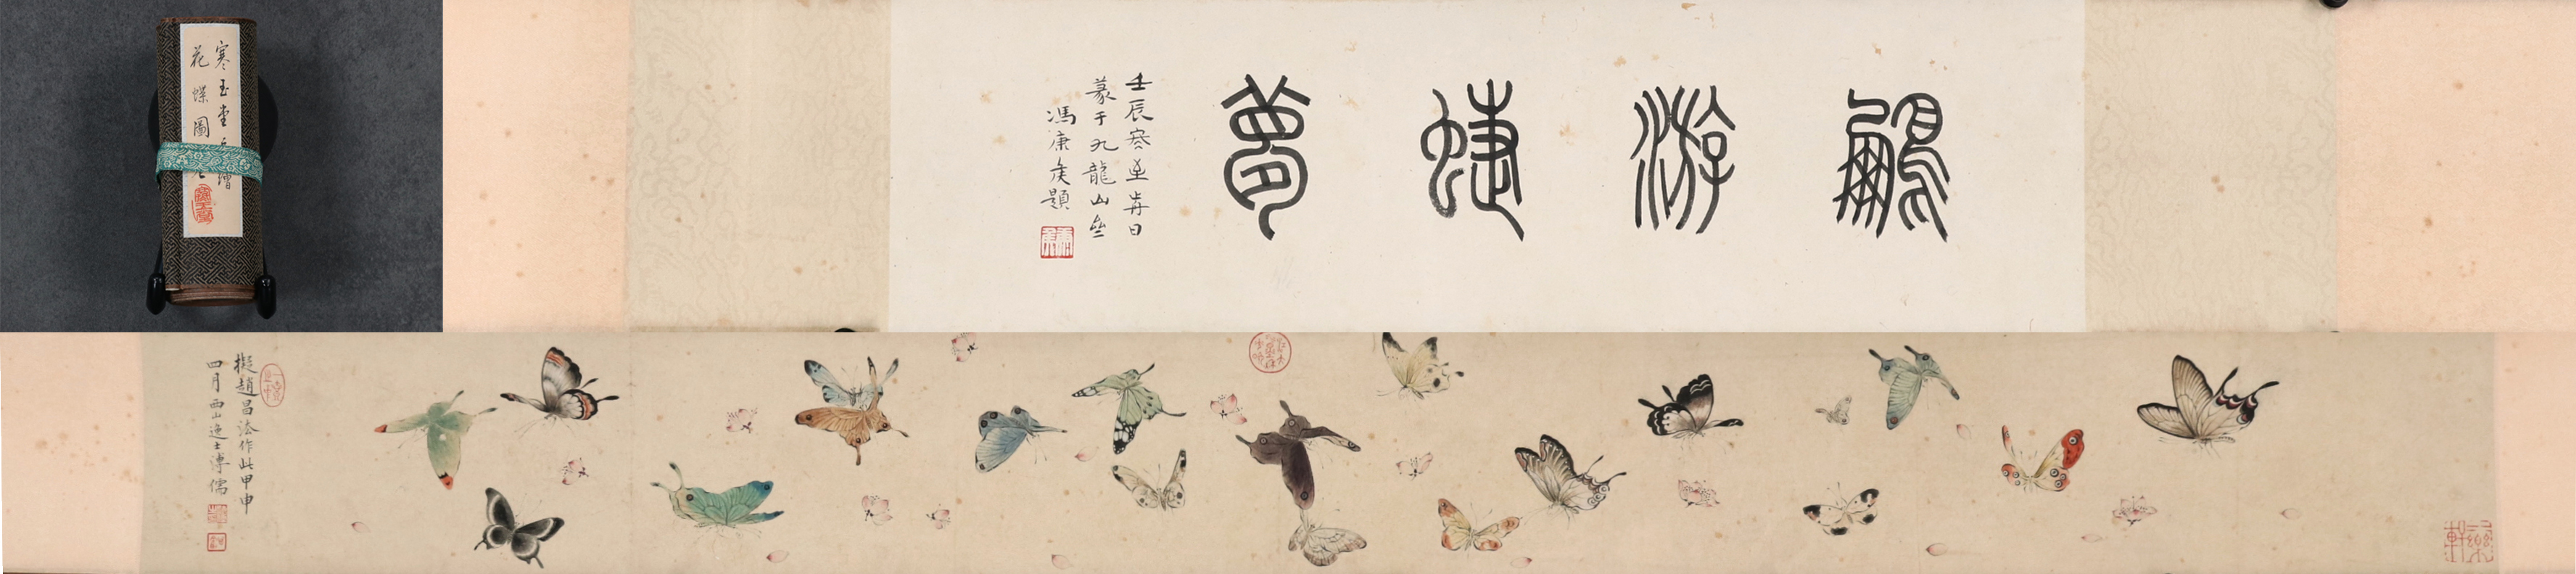 寒玉堂繪
花蝶圖
鵬游蜨夢
壬辰至歬日
篆于九龍山亝
馮康矦題
擬趙昌法作此甲申
四月西山逸士溥儒